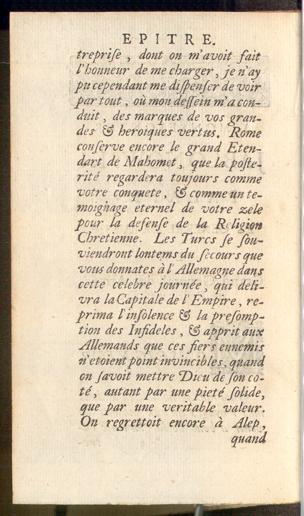 EPITRE.
treprise, dont on m'avoit fait
l'honneur de me charger, je n'ay
pu cependant me dispenser de voir
par tout, où mon dessein m'a con-
duit, des marques de vos gran-
des & heroiques vertus. Rome
conserve encore le grand Eten-
dart de Mahomet, que la poste-
rité regardera toujours comme
votre conquete, & comme un te-
moignage eternel de votre zele
pour la defense de la Religion
Chretienne. Les Turcs se sou-
viendront lontems du secours que
vous donnates à l'Allemagne dans
cette celebre journée, qui deli-
vra la Capitale de l'Empire, re-
prima l'insolence & la presomp-
tion des Infideles, & apprit aux
Allemands que ces fiers ennemis
n'etoient point invincibles, quand
on savoit mettre Dieu de son co-
té, autant par une pieté solide,
que par une veritable valeur.
On regrettoit encore à Alep,
quand